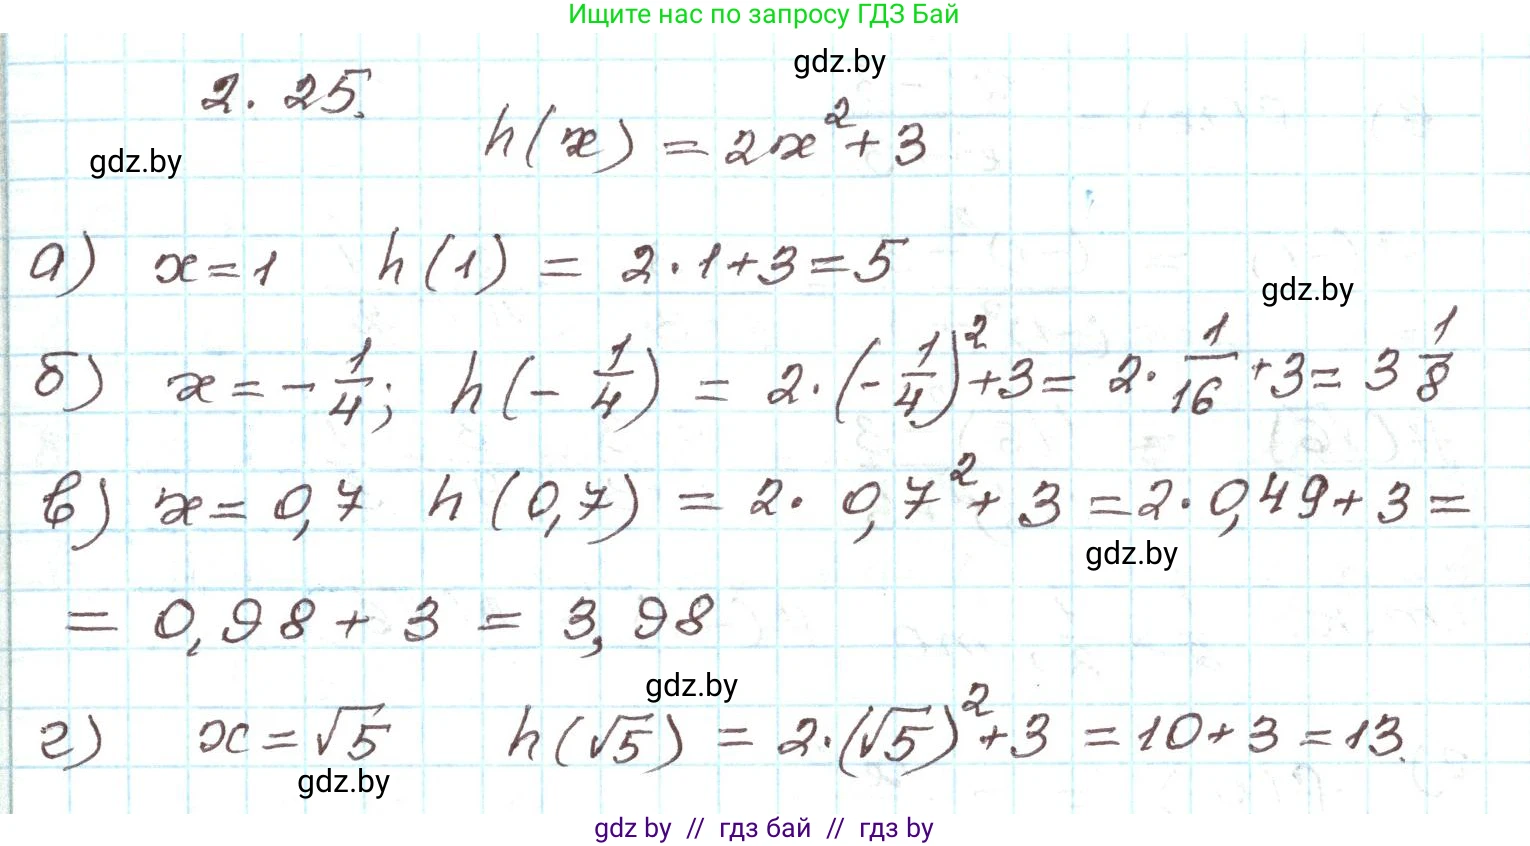 Ищите нас по запросу ГДЗ Бай
gdz.by
2.25.
h(x) = 2x² + 3
gdz.by
а) x = 1 h(1) = 2·1+3=5
gdz.by
б) x = -1/4; h(-1/4) = 2·(-1/4)²+3= 2·1/16+3= 3 1/8
в) x = 0,7 h(0,7) = 2· 0,7² + 3 = 2·0,49 + 3 =
gdz.by
= 0,98 + 3 = 3,98
gdz.by
г) x = √5 h(√5) = 2·(√5)² + 3 = 10+3 = 13.
gdz.by
gdz by // гдз бай // гдз by